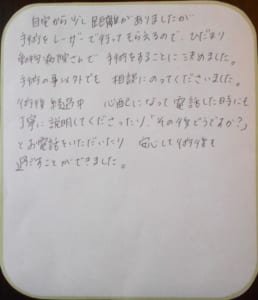 自宅から少し距離がありましたが
手術をレーザーで行ってもらえるので、ひだまり
動物病院さんで手術をすることに決めました。
手術の事以外でも 相談にのってくださいました。
術後経過中 心配になって電話した時にも
丁寧に説明してくださったり、「その後どうですか?」
とお電話をいただいたり 安心して術後を
過ごすことができました。